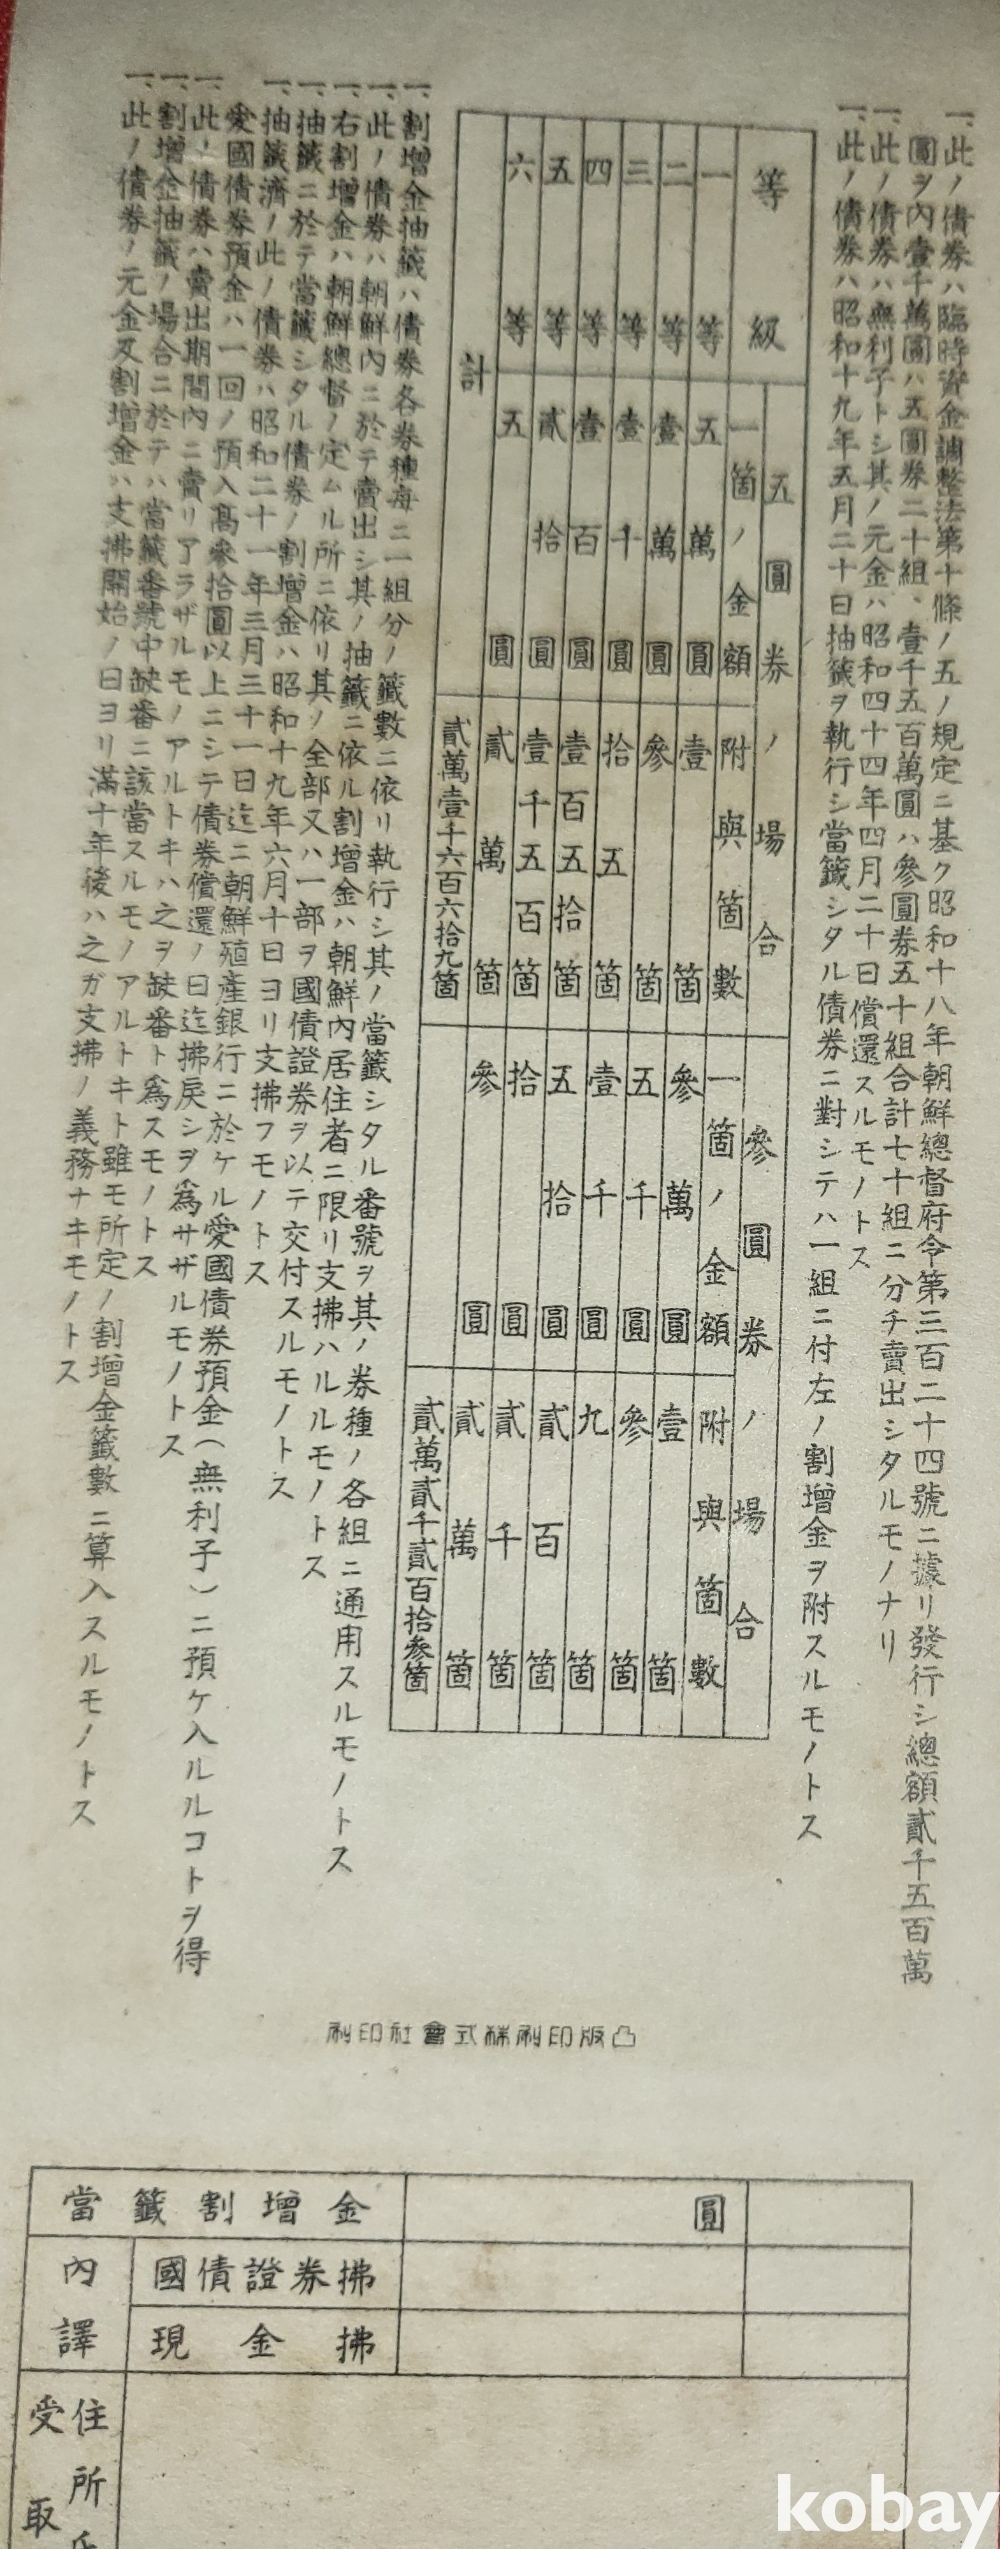 一、此ノ債券ハ臨時資金調整法第十條ノ五ノ規定ニ基ク昭和十八年朝鮮總督府令第三百二十四號ニ據リ發行シ總額貳千五百萬
圓ヲ內壹千萬圓ハ五圓券二十組、壹千五百萬圓ハ參圓券五十組合計七十組ニ分チ賣出シタルモノナリ
一、此ノ債券ハ無利子トシ其ノ元金ハ昭和四十四年四月二十日償還スルモノトス
一、此ノ債券ハ昭和十九年五月二十日抽籤ヲ執行シ當籤シタル債券ニ對シテハ一組ニ付左ノ割增金ヲ附スルモノトス
等級 五圓券ノ場合 參圓券ノ場合
一箇ノ金額 附與箇數 一箇ノ金額 附與箇數
一等 五萬圓 壹箇 參萬圓 壹箇
二等 壹萬圓 參箇 五千圓 參箇
三等 壹千圓 拾五箇 壹千圓 九箇
四等 壹百圓 壹百五拾箇 五拾圓 貳百箇
五等 貳拾圓 壹千五百箇 拾圓 貳千箇
六等 五圓 貳萬箇 參圓 貳萬箇
計 貳萬壹千六百六拾九箇 貳萬貳千貳百拾參箇
一、割增金抽籤ハ債券各券種每ニ一組分ノ籤數ニ依リ執行シ其ノ當籤シタル番號ヲ其ノ券種ノ各組ニ通用スルモノトス
一、此ノ債券ハ朝鮮內ニ於テ賣出シ其ノ抽籤ニ依ル割增金ハ朝鮮內居住者ニ限リ支拂ハルルモノトス
一、右割增金ハ朝鮮總督ノ定ムル所ニ依リ其ノ全部又ハ一部ヲ國債證券ヲ以テ交付スルモノトス
一、抽籤ニ於テ當籤シタル債券ノ割增金ハ昭和十九年六月十日ヨリ支拂フモノトス
一、抽籤濟ノ此ノ債券ハ昭和二十一年三月三十一日迄ニ朝鮮殖產銀行ニ於ケル愛國債券預金（無利子）ニ預ケ入ルルコトヲ得
愛國債券預金ハ一回ノ預入高參拾圓以上ニシテ債券償還ノ日迄拂戾シヲ爲サザルモノトス
一、此ノ債券ハ賣出期間內ニ賣リアラザルモノアルトキハ之ヲ缺番ト爲スモノトス
一、割增金抽籤ノ場合ニ於テハ當籤番號中缺番ニ該當スルモノアルトキト雖モ所定ノ割增金籤數ニ算入スルモノトス
一、此ノ債券ノ元金及割增金ハ支拂開始ノ日ヨリ滿十年後ハ之ガ支拂ノ義務ナキモノトス
凸版印刷株式會社印刷
當籤割增金 圓
內譯 國債證券拂
現金拂
受取
住所
kobay